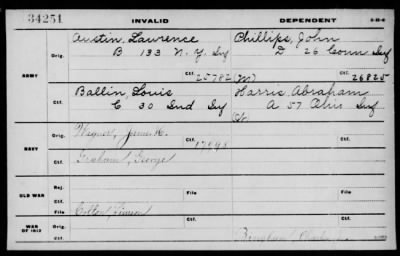 34251 INVALID DEPENDENT 3-18-6
Austin, Laurence Phillips, John
Orig. B 133 N.Y. Inf D 26 Conn Inf
ARMY
Ctf. 25782 (M) Ctf. 26825
Ballin, Louis Harris, Abraham
Ctf. C 30 Ind Inf A 57 Ohio Inf
Wagner, James H.
Orig. Ctf. 17098 Ctf.
NAVY
Graham, George
Ctf.
Rej.
OLD WAR Ctf. File File
Colton, Simeon
Orig. Ctf. Ctf.
WAR OF 1812
Bingham,
Ctf.